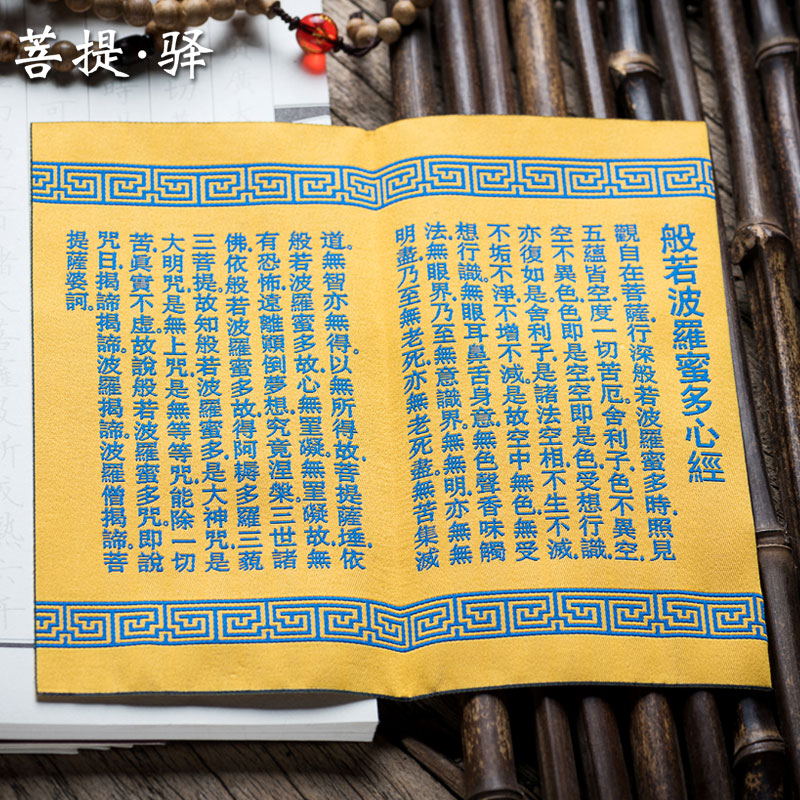 菩提·驿
般若波羅蜜多心經
觀自在菩薩，行深般若波羅蜜多時，照見
五蘊皆空，度一切苦厄。舍利子，色不異空，
空不異色，色即是空，空即是色，受想行識，
亦復如是。舍利子，是諸法空相，不生不滅，
不垢不淨，不增不減。是故空中無色，無受
想行識。無眼耳鼻舌身意，無色聲香味觸
法，無眼界，乃至無意識界，無無明，亦無無
明盡，乃至無老死，亦無老死盡。無苦集滅
道。無智亦無得。以無所得故，菩提薩埵，依
般若波羅蜜多故，心無罣礙。無罣礙故，無
有恐怖，遠離顛倒夢想，究竟涅槃。三世諸
佛，依般若波羅蜜多故，得阿耨多羅三藐
三菩提。故知般若波羅蜜多，是大神咒，是
大明咒，是無上咒，是無等等咒，能除一切
苦，眞實不虛。故說般若波羅蜜多咒。即說
咒曰，揭諦揭諦。波羅揭諦。波羅僧揭諦。菩
提薩婆訶。